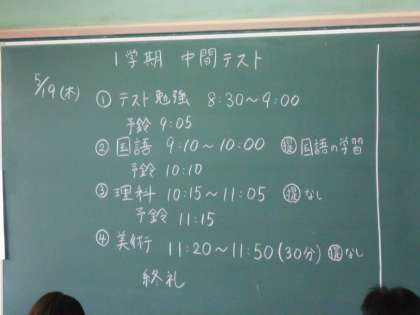 1学期 中間テスト
5/19(木)
① テスト勉強 8:30~9:00
予鈴 9:05
② 国語 9:10~10:00 提 国語の学習
予鈴 10:10
③ 理科 10:15~11:05 提 なし
予鈴 11:15
④ 美術 11:20~11:50(30分) 提 なし
終礼